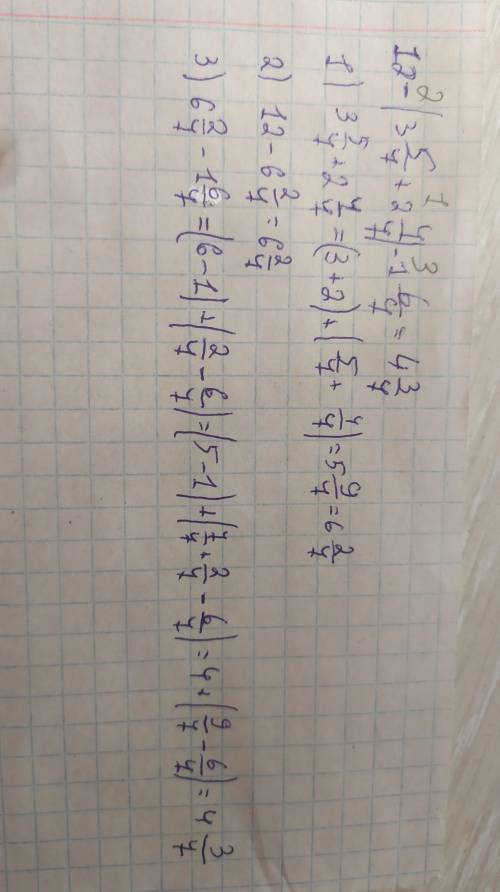 2 1 3
12 - (3 5/7 + 2 4/7) - 1 6/7 = 4 3/7
1) 3 5/7 + 2 4/7 = (3+2) + (5/7 + 4/7) = 5 9/7 = 6 2/7
2) 12 - 6 2/7 = 6 2/7
3) 6 2/7 - 1 6/7 = (6-1) + (2/7 - 6/7) = (5-1) + (7/7 + 2/7 - 6/7) = 4 + (9/7 - 6/7) = 4 3/7